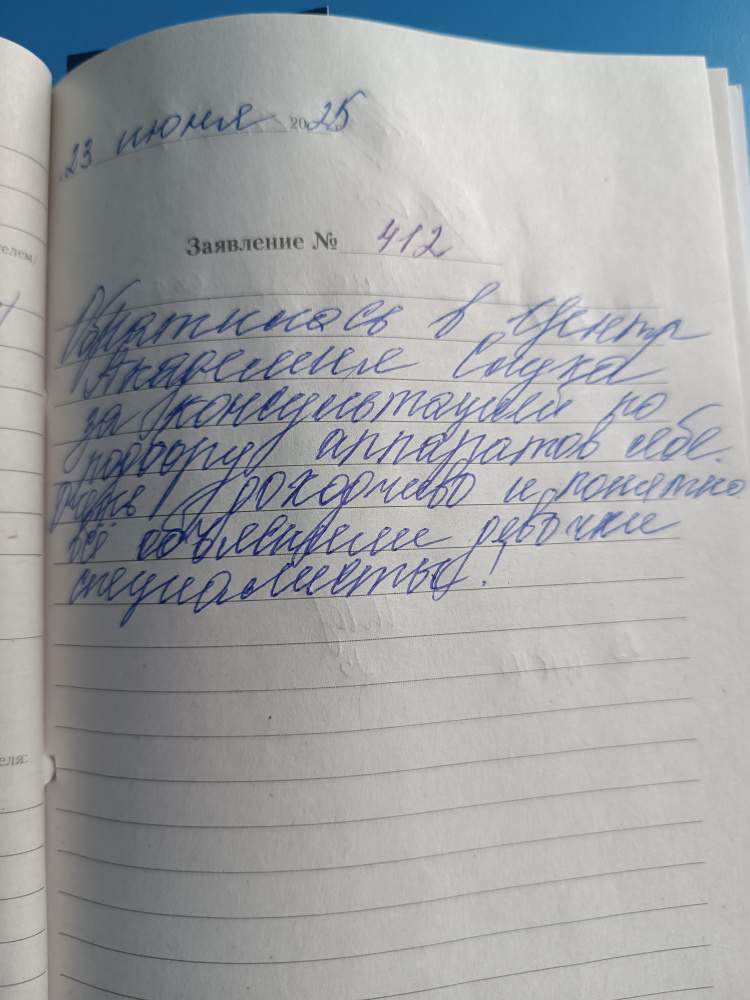 23 июня 2025
Заявление № 412
Обратилась в Центр
Академия Слуха
за консультацией по
подбору аппаратов себе.
Очень доходчиво и понятно
всё объяснили девочки
специалисты!
телем/
еля: